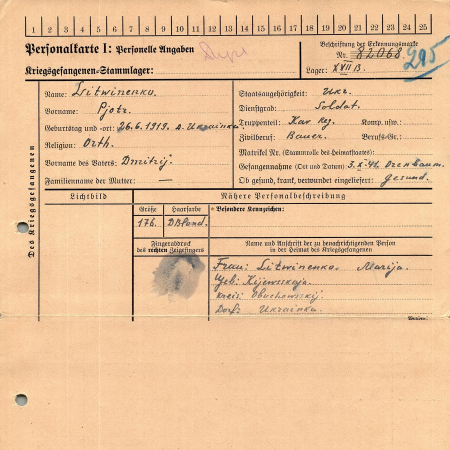 1 2 3 4 5 6 7 8 9 10 11 12 13 14 15 16 17 18 19 20 21 22 23 24 25
Personalkarte I: Personelle Angaben
Beschriftung der Erkennungsmarke
Nr. 82068 295
Kriegsgefangenen-Stammlager:
Lager: XVII B.
Des Kriegsgefangenen
Name: Litwinenko.
Staatsangehörigkeit: Ukr.
Vorname: Pjotr.
Dienstgrad: Soldat.
Geburtstag und -ort: 26.6.1919. Ukrainka
Truppenteil: Kav. Reg. Komp. usw.:
Religion: Orth.
Zivilberuf: Bauer. Berufs-Gr.:
Matrikel Nr. (Stammrolle des Heimatstaates):
Vorname des Vaters: Dmitrij.
Gefangennahme (Ort und Datum): 3.X.41.
Familienname der Mutter: —
Ob gesund, krank, verwundet eingeliefert: Gesund.
Lichtbild
Nähere Personalbeschreibung
Größe Haarfarbe Besondere Kennzeichen:
176. D Blond.
Fingerabdruck
des rechten Zeigefingers
Name und Anschrift der zu benachrichtigenden Person
in der Heimat des Kriegsgefangenen
Frau: Litwinenko. Marija.
Geb: Kijewskaja.
Kreis: Obuchowskij.
Dorf: Ukrainka.